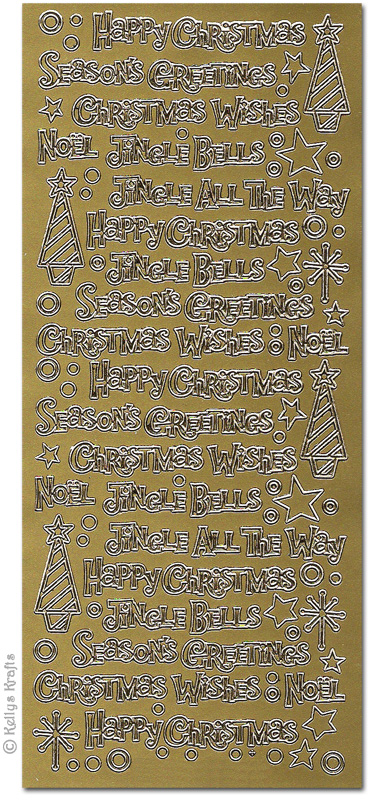 Happy Christmas
Season's Greetings
Christmas Wishes
Noël Jingle Bells
Jingle All The Way
Happy Christmas
Jingle Bells
Season's Greetings
Christmas Wishes Noël
Happy Christmas
Season's Greetings
Christmas Wishes
Noël Jingle Bells
Jingle All The Way
Happy Christmas
Jingle Bells
Season's Greetings
Christmas Wishes Noël
Happy Christmas
© Kellys Krafts